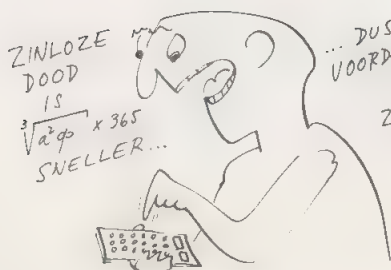 ZINLOZE
DOOD
IS
∛(a²φ) x 365
SNELLER...
... DUS
VOORD